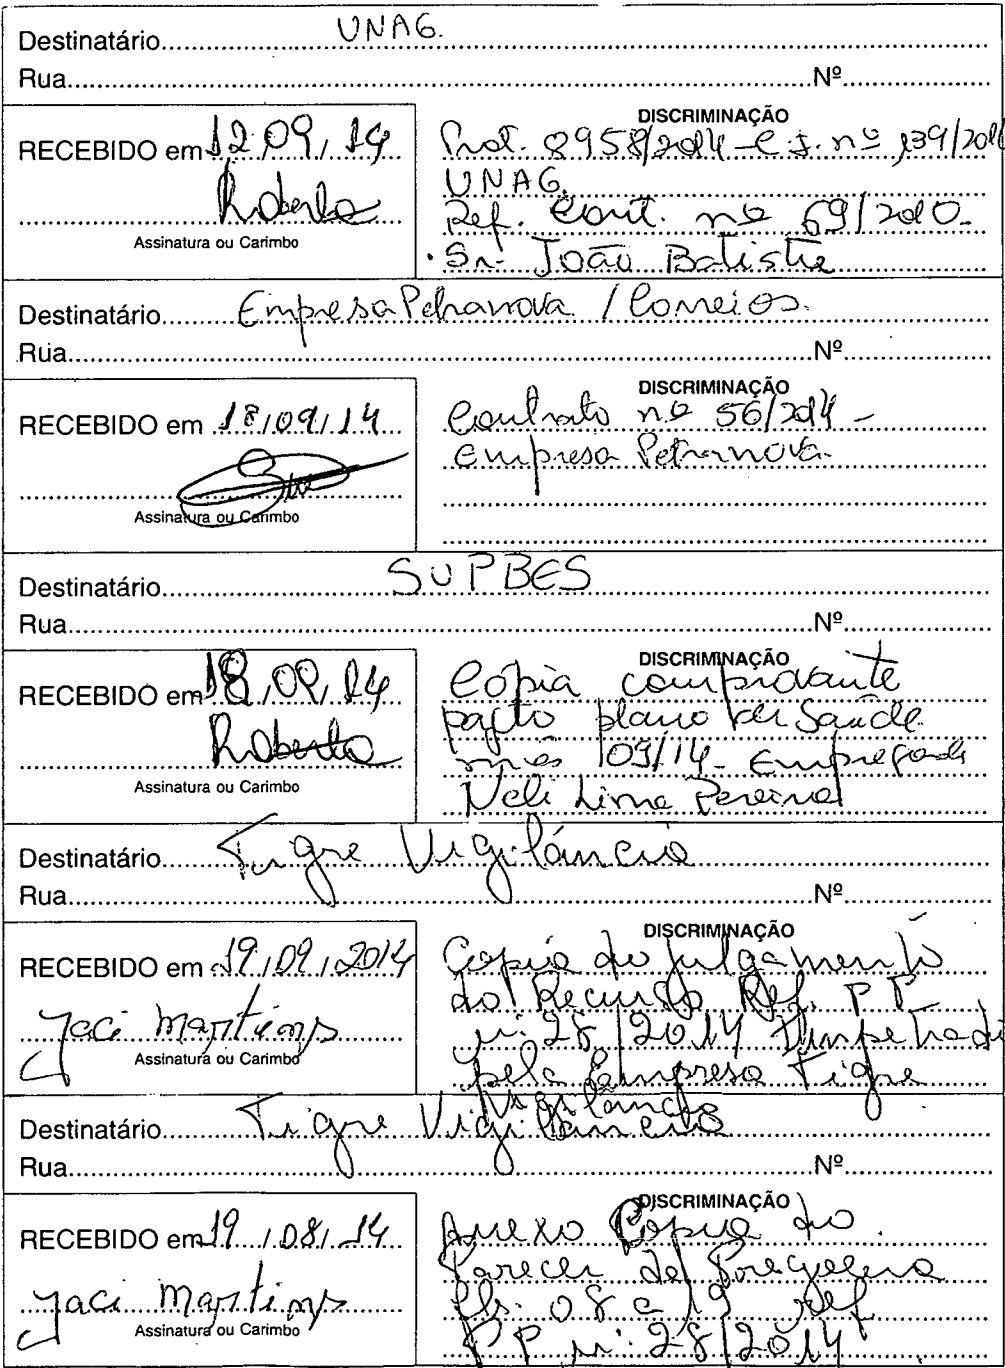 Destinatário UNAG.
Rua Nº
RECEBIDO em 12,09,14
Roberto
Assinatura ou Carimbo
DISCRIMINAÇÃO
Prot. 8958/2014 - C.J. nº 139/2014
UNAG.
Ref. Cont. nº 69/2010-
Sr. João Batista
Destinatário Empresa Petranova / Correios.
Rua Nº
RECEBIDO em 18/09/14
Assinatura ou Carimbo
DISCRIMINAÇÃO
Contrato nº 56/2014 -
Empresa Petranova.
Destinatário SUPBES
Rua Nº
RECEBIDO em 18,09,14
Roberto
Assinatura ou Carimbo
DISCRIMINAÇÃO
Copia comprovante
pagto plano de Saúde
mês 09/14 - Empregada
Neli Lima Pereira
Destinatário Tigre Vigilância
Rua Nº
RECEBIDO em 19,09,2014
Jaci Martins
Assinatura ou Carimbo
DISCRIMINAÇÃO
Copia do julgamento
do Recurso Ref. PP
nº 28/2014 Impetrado
pela Empresa Tigre
Vigilância
Destinatário Tigre Vigilância
Rua Nº
RECEBIDO em 19,08,14
Jaci Martins
Assinatura ou Carimbo
DISCRIMINAÇÃO
Anexo Copia do
Parecer do Pregoeiro
fls. 08 a 19 ref
PP nº 28/2014